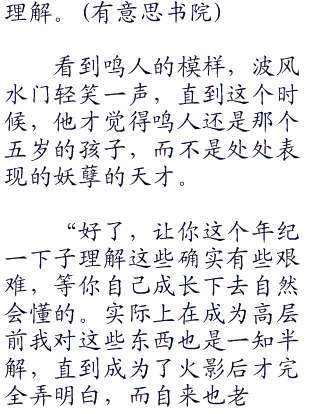 理解。(有意思书院)
看到鸣人的模样，波风
水门轻笑一声，直到这个时
候，他才觉得鸣人还是那个
五岁的孩子，而不是处处表
现的妖孽的天才。
“好了，让你这个年纪
一下子理解这些确实有些艰
难，等你自己成长下去自然
会懂的。实际上在成为高层
前我对这些东西也是一知半
解，直到成为了火影后才完
全弄明白，而自来也老